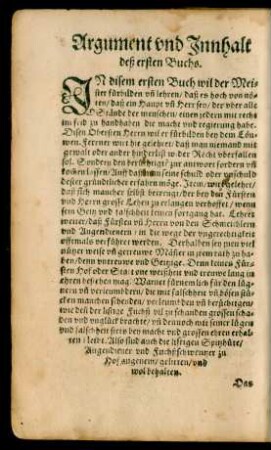 Argument vnd Innhalt
deß ersten Buchs.
IN disem ersten Buch wil der Mei-
ster fürbilden vñ lehren / daß es hoch von nö-
ten / daß ein Haupt vñ Herr sey / der vber alle
Stände der menschen / einen jedern mit recht
im fried zu handhaben die macht vnd regierung habe.
Disen Obersten Herrn wil er fürbilden bey dem Löu-
wen. Ferrner wirt hie gelehret / daß man niemand mit
gewalt oder ander hinderliß in der Recht vberfallen
sol. Sondern den zur antwort fordern vñ
kommen lassen / Auff daß man seine schuld oder vnschuld
dester gründtlicher erfahren möge. Item / wirt gelehret /
daß sich mancher selbst betreugt / der bey den Fürsten
vnd Herrn grosse Lehen zu erlangen verhoffet / wenn
sein Geitz vnd falschheit keinen fortgang hat. Lehret
weiter / daß Fürsten vñ Herrn von den Schmeichlern
vnd Augendienern / in die wege der vngerechtigkeit
offtmals verführet werden. Derhalben sey jnen viel
nützer weise vñ getreuwe Männer in jrem rath zu ha-
ben / denn vntreuwe vnd Geitzige. Denn keines Für-
sten Hof oder Stat one weißheit vnd treuwe lang in
ehren bestehen mag. Warnet fürnemlich für den lüg-
nern vñ verleumbdern / die mit falschheit vñ bösen stü-
cken manchen schenden / verleumbden vñ versüchtigen /
wie deñ der listige Fuchß vil zu schanden grossen scha-
den vnd vnglück brachte / vñ dennoch mit seiner lügen
vnd falschheit sein bey macht vnd grossen ehren erhal-
ten bleibt. Also sind auch die listigen Spitzhüte /
Augendiener vnd Fuchßschwentzer zu
Hof angenem / gelitten / vnd
wol behalten.
Das